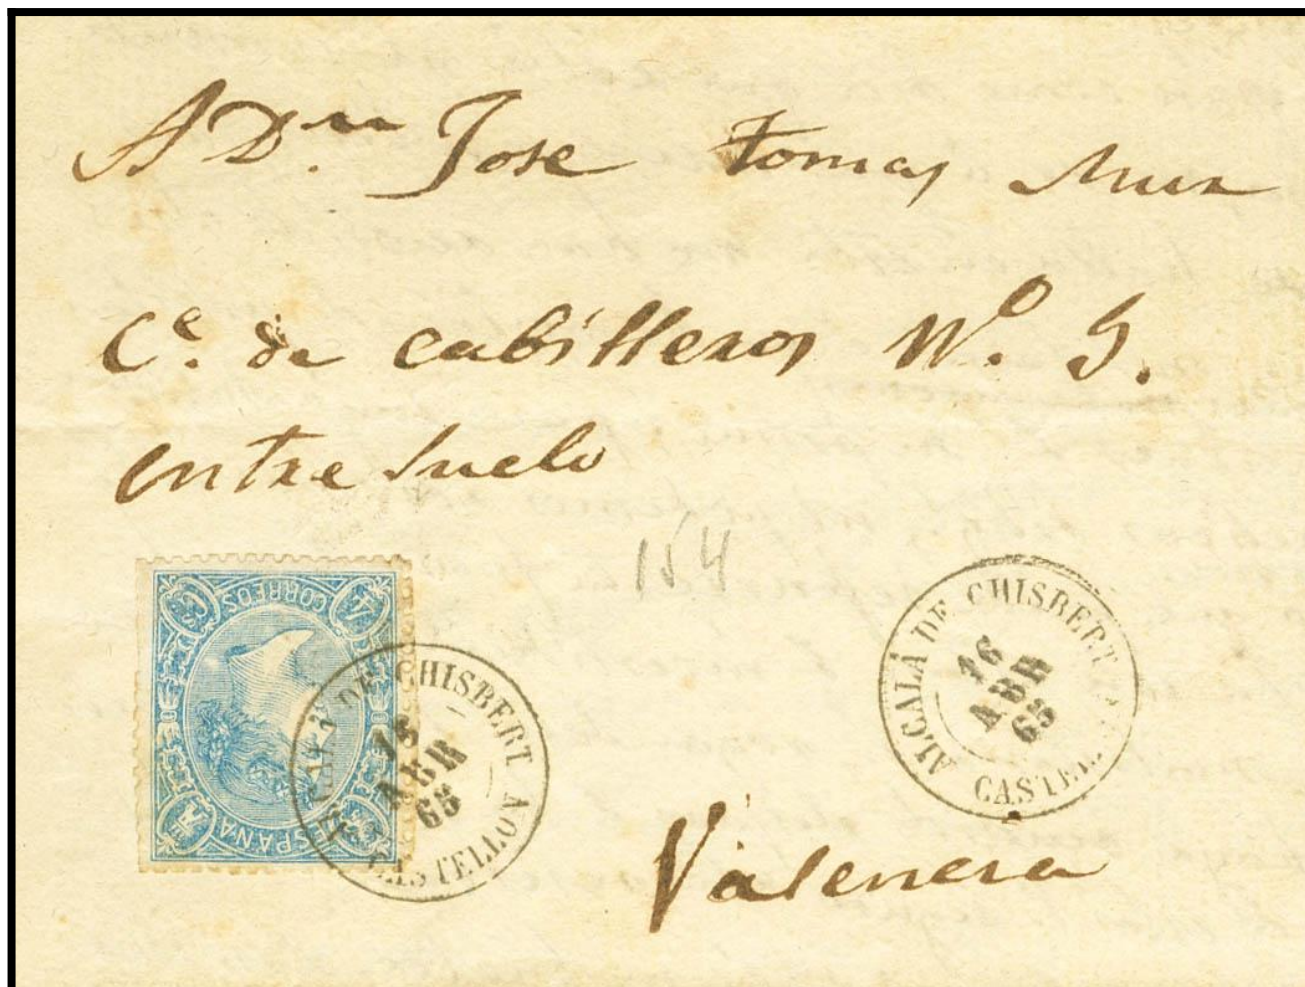 A D.ⁿ Jose tomas Mur
C.ᵉ de cabilleros Nº. 9.
entre Suelo
154
CORREOS
4 Cs
ESPAÑA
ALCALA DE CHISBERT
16
ABR
65
CASTELLON
ALCALÁ DE CHISBERT
16
ABR
65
CASTEL
Valencia